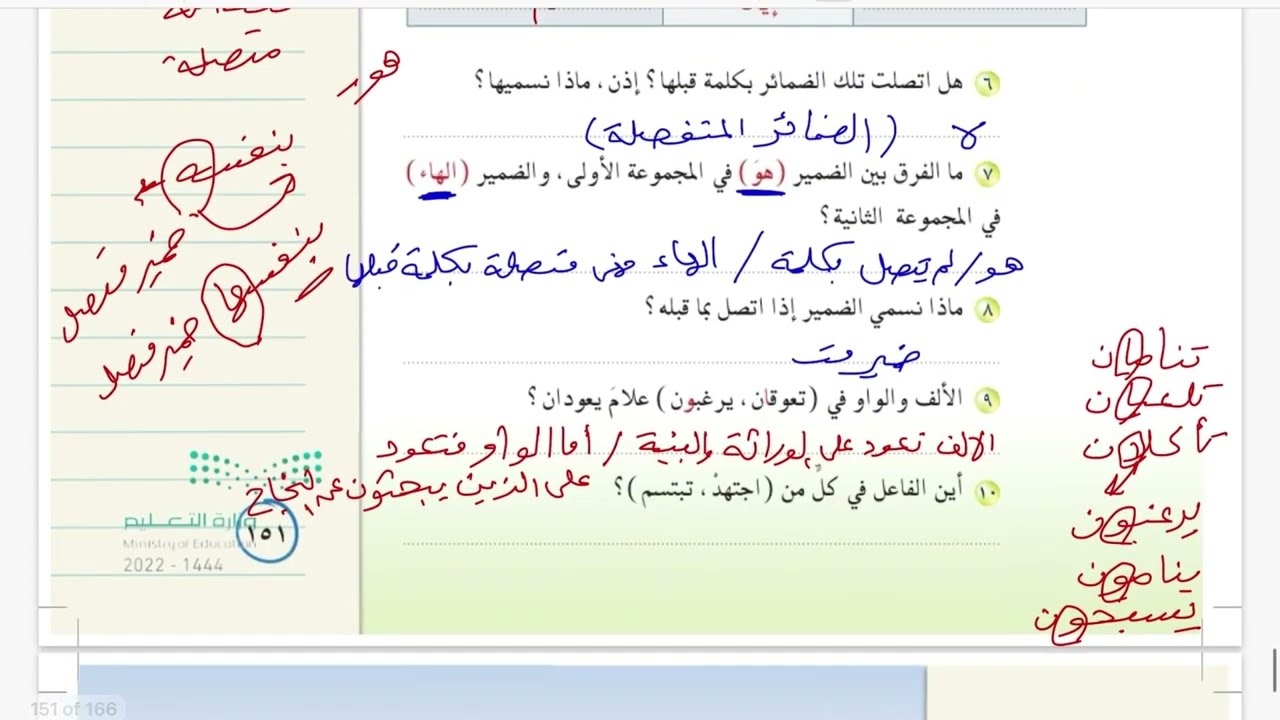 متصلة
هو
٦ هل اتصلت تلك الضمائر بكلمة قبلها؟ إذن، ماذا نسميها؟
لا (الضمائر المنفصلة)
بنفسه
٧ ما الفرق بين الضمير (هوَ) في المجموعة الأولى، والضمير (الهاء)
في المجموعة الثانية؟
ضمير متصل
بنفسها
هو/لم يتصل بكلمة / الهاء متصلة بكلمة قبلها
ضمير متصل
٨ ماذا نسمي الضمير إذا اتصل بما قبله؟
ضمير مت
٩ الألف والواو في (تعوقان، يرغبون) علامَ يعودان؟
الألف تعود على الوراثة والبيئة / أما الواو فتعود
على الذين يبحثون عن النجاح
١٠ أين الفاعل في كلٍّ من (اجتهدْ، تبتسم)؟
تلعبان
يرغبون
ينامون
يسبحون
وزارة التعليم
Ministry of Education
2022 - 1444
١٥١
151 of 166